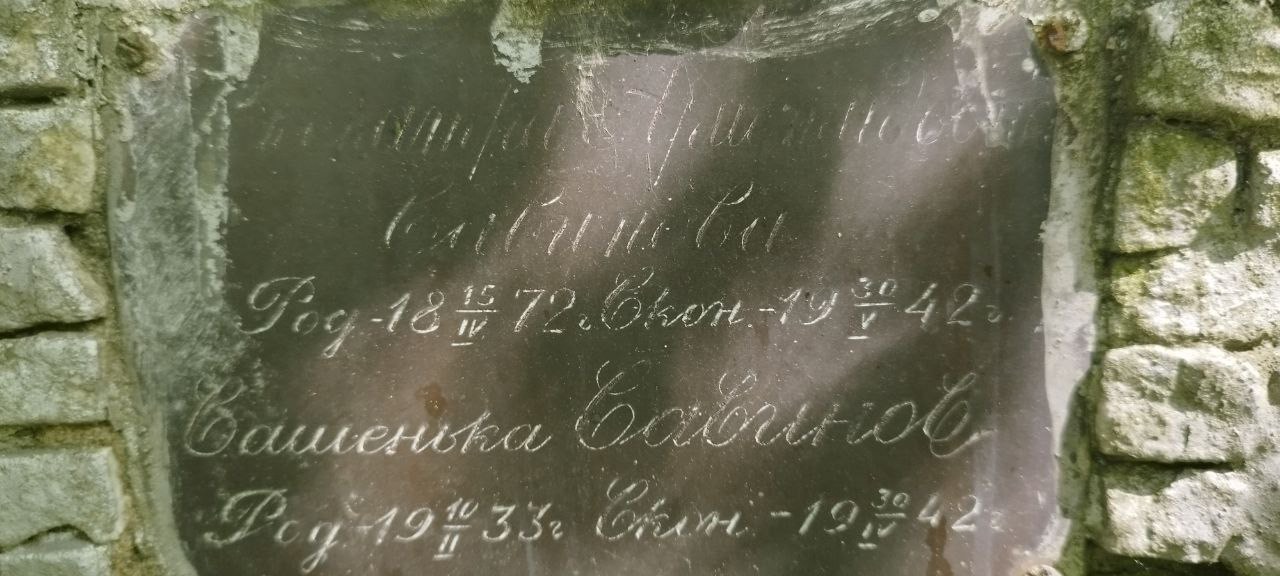 Савинова
Род-18 15/IV 72г. Скон.-19 30/V 42г.
Сашенька Савинов
Род-19 10/II 33г Скон -19 30/IV 42г